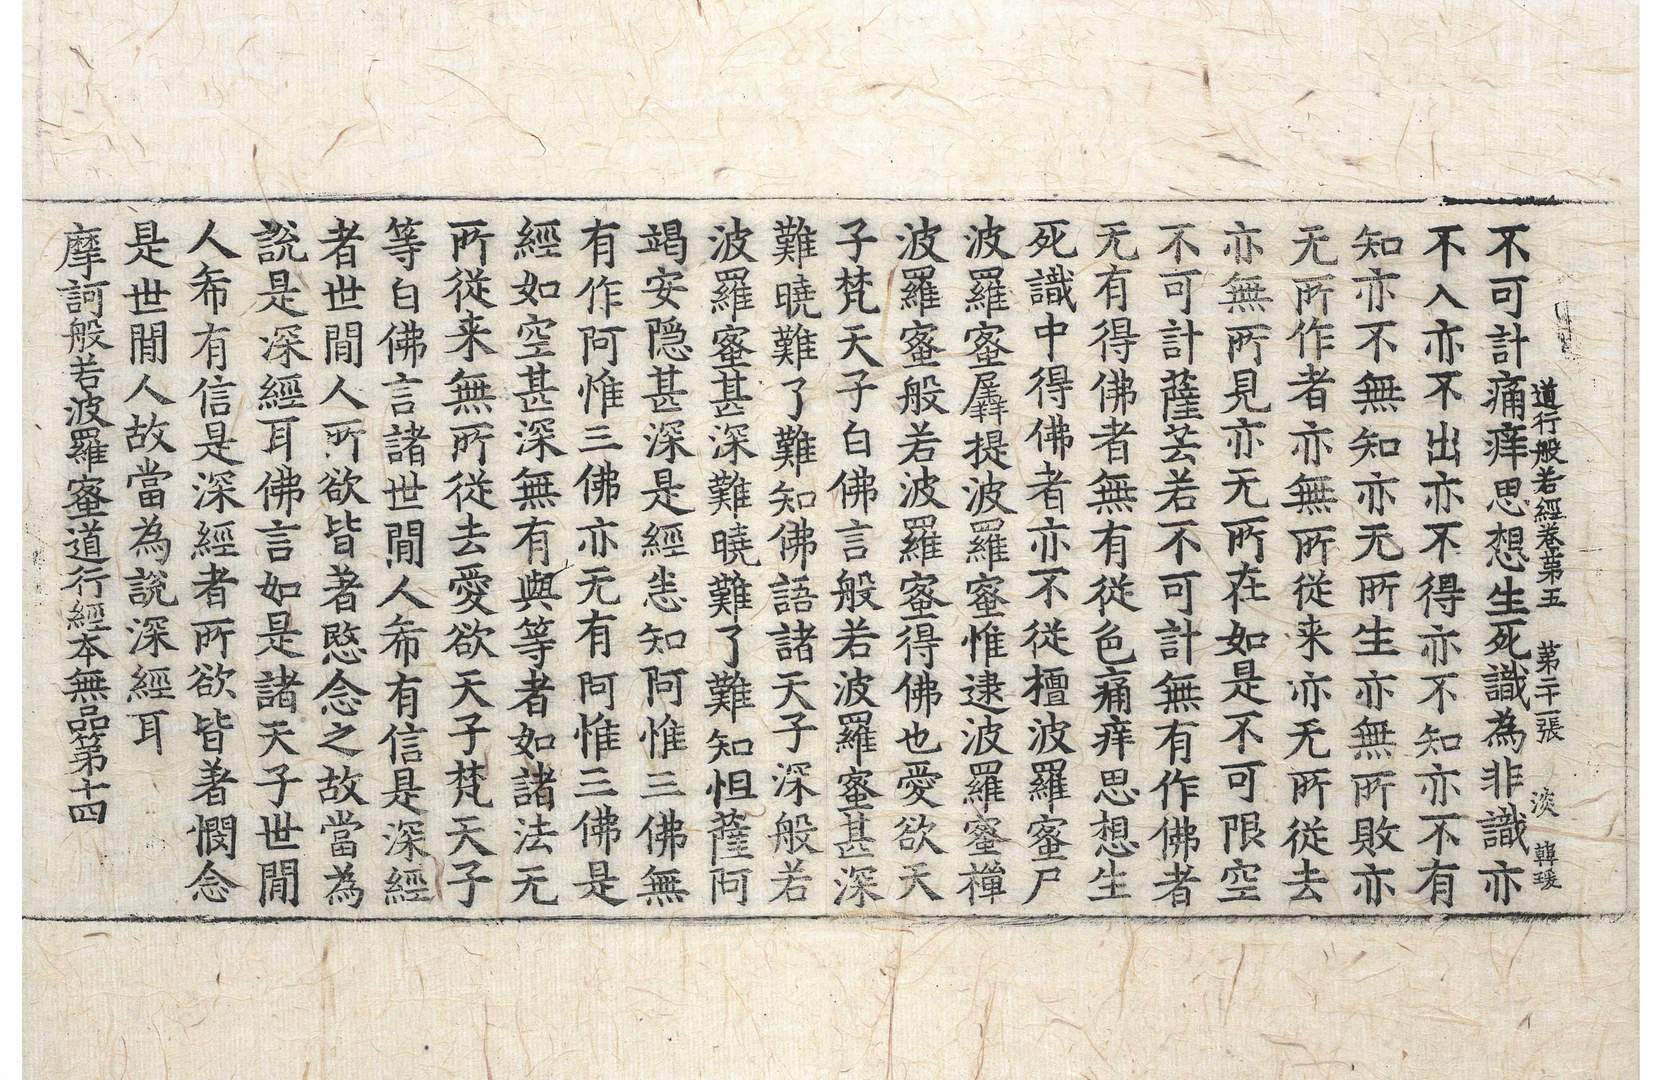 道行般若經卷苐五 苐二十一張 淡 韓瑗
不可計痛痒思想生死識為非識亦
不入亦不出亦不得亦不知亦不有
知亦不無知亦无所生亦無所敗亦
无所作者亦無所從来亦无所從去
亦無所見亦无所在如是不可限空
不可計薩芸若不可計無有作佛者
无有得佛者無有從色痛痒思想生
死識中得佛者亦不從檀波羅蜜尸
波羅蜜羼提波羅蜜惟逮波羅蜜禪
波羅蜜般若波羅蜜得佛也愛欲天
子梵天子白佛言般若波羅蜜甚深
難曉難了難知佛語諸天子深般若
波羅蜜甚深難曉難了難知怛薩阿
竭安隱甚深是經悉知阿惟三佛無
有作阿惟三佛亦无有阿惟三佛是
經如空甚深無有與等者如諸法无
所從来無所從去愛欲天子梵天子
等白佛言諸世閒人希有信是深經
者世閒人所欲皆著愍念之故當為
說是深經耳佛言如是諸天子世閒
人希有信是深經者所欲皆著憫念
是世閒人故當為說深經耳
摩訶般若波羅蜜道行經本無品第十四